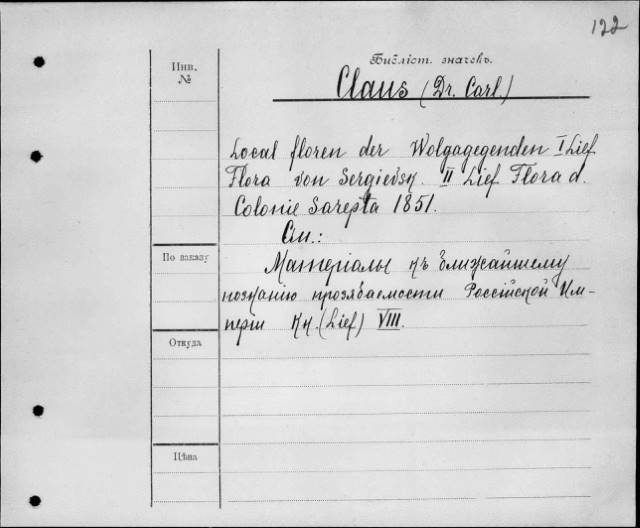 122
Библіот. значекъ.
Инв.
№
Claus (Dr. Carl.)
Local floren der Wolgagegenden I Lief
Flora von Sergievsk. II Lief Flora d.
Colonie Sarepta 1851.
См.:
По заказу
Матеріалы къ ближайшему
познанію прозябаемости Россійской Им-
періи Кн. (Lief) VIII.
Откуда
Цѣна